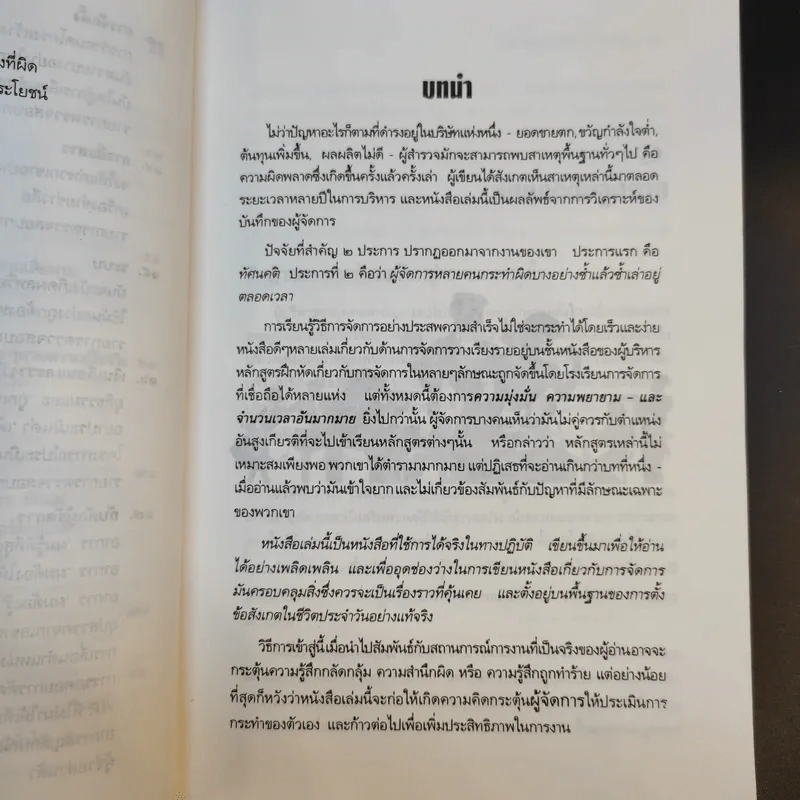 งที่ผิด
ระโยชน์
บทนำ
ไม่ว่าปัญหาอะไรก็ตามที่ดำรงอยู่ในบริษัทแห่งหนึ่ง - ยอดขายตก, ขวัญกำลังใจต่ำ,
ต้นทุนเพิ่มขึ้น, ผลผลิตไม่ดี - ผู้สำรวจมักจะสามารถพบสาเหตุพื้นฐานทั่วๆไป คือ
ความผิดพลาดซึ่งเกิดขึ้นครั้งแล้วครั้งเล่า ผู้เขียนได้สังเกตเห็นสาเหตุเหล่านี้มาตลอด
ระยะเวลาหลายปีในการบริหาร และหนังสือเล่มนี้เป็นผลลัพธ์จากการวิเคราะห์ของ
บันทึกของผู้จัดการ
ปัจจัยที่สำคัญ ๒ ประการ ปรากฏออกมาจากงานของเขา ประการแรก คือ
ทัศนคติ ประการที่ ๒ คือว่า ผู้จัดการหลายคนกระทำผิดบางอย่างซ้ำแล้วซ้ำเล่าอยู่
ตลอดเวลา
การเรียนรู้วิธีการจัดการอย่างประสพความสำเร็จไม่ใช่จะกระทำได้โดยเร็วและง่าย
หนังสือดีๆหลายเล่มเกี่ยวกับด้านการจัดการวางเรียงรายอยู่บนชั้นหนังสือของผู้บริหาร
หลักสูตรฝึกหัดเกี่ยวกับการจัดการในหลายๆลักษณะถูกจัดขึ้นโดยโรงเรียนการจัดการ
ที่เชื่อถือได้หลายแห่ง แต่ทั้งหมดนี้ต้องการความมุ่งมั่น ความพยายาม – และ
จำนวนเวลาอันมากมาย ยิ่งไปกว่านั้น ผู้จัดการบางคนเห็นว่ามันไม่คู่ควรกับตำแหน่ง
อันสูงเกียรติที่จะไปเข้าเรียนหลักสูตรต่างๆนั้น หรือกล่าวว่า หลักสูตรเหล่านี้ไม่
เหมาะสมเพียงพอ พวกเขาได้ตำรามามากมาย แต่ปฏิเสธที่จะอ่านเกินกว่าบทที่หนึ่ง -
เมื่ออ่านแล้วพบว่ามันเข้าใจยาก และไม่เกี่ยวข้องสัมพันธ์กับปัญหาที่มีลักษณะเฉพาะ
ของพวกเขา
หนังสือเล่มนี้เป็นหนังสือที่ใช้การได้จริงในทางปฏิบัติ เขียนขึ้นมาเพื่อให้อ่าน
ได้อย่างเพลิดเพลิน และเพื่ออุดช่องว่างในการเขียนหนังสือเกี่ยวกับการจัดการ
มันครอบคลุมสิ่งซึ่งควรจะเป็นเรื่องราวที่คุ้นเคย และตั้งอยู่บนพื้นฐานของการตั้ง
ข้อสังเกตในชีวิตประจำวันอย่างแท้จริง
วิธีการเข้าสู่นี้ เมื่อนำไปสัมพันธ์กับสถานการณ์การงานที่เป็นจริงของผู้อ่านอาจจะ
กระตุ้นความรู้สึกกลัดกลุ้ม ความสำนึกผิด หรือ ความรู้สึกถูกทำร้าย แต่อย่างน้อย
ที่สุดก็หวังว่าหนังสือเล่มนี้จะก่อให้เกิดความคิดกระตุ้นผู้จัดการให้ประเมินการ
กระทำของตัวเอง และก้าวต่อไปเพื่อเพิ่มประสิทธิภาพในการงาน